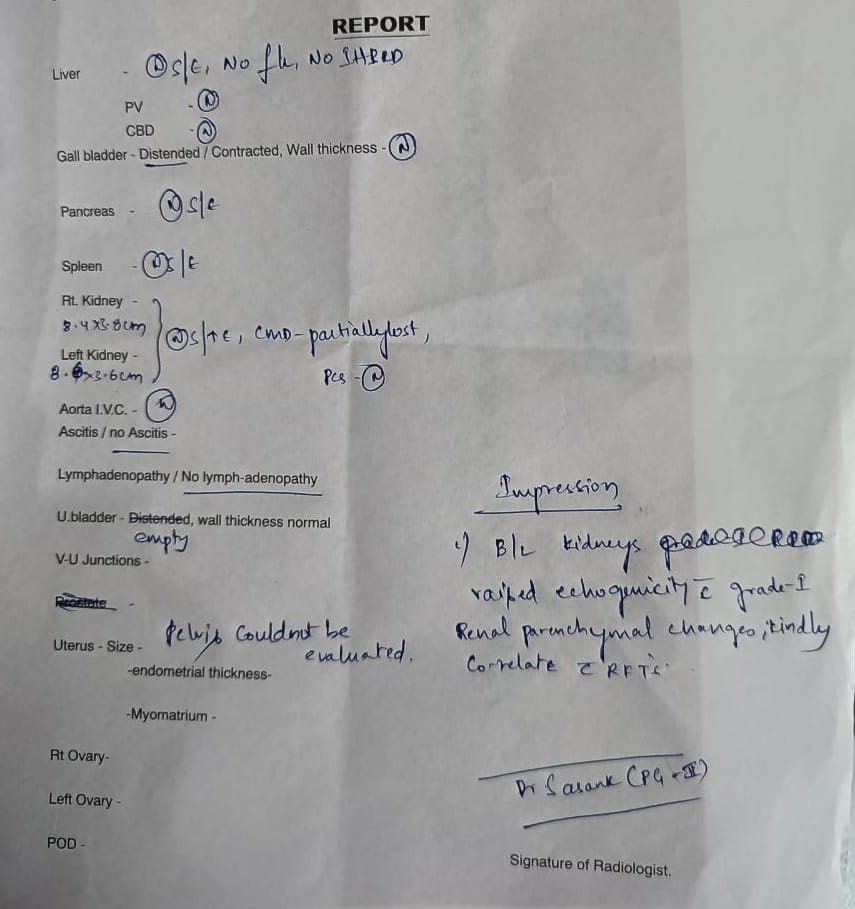 REPORT
Liver - Ⓝ S/E, No fl, No IHBRD
PV - Ⓝ
CBD - Ⓝ
Gall bladder - Distended / Contracted, Wall thickness - Ⓝ
Pancreas - Ⓝ S/E
Spleen - Ⓝ S/E
Rt. Kidney -
8.4 x 3.8 cm
Ⓝ S/↑E, CMD - partially lost,
Left Kidney -
8. x 3.6 cm
PCS - Ⓝ
Aorta I.V.C. - Ⓝ
Ascitis / no Ascitis -
Lymphadenopathy / No lymph-adenopathy
U.bladder - Distended, wall thickness normal
empty
V-U Junctions -
Prostate -
Uterus - Size - Pelvis Couldnot be
evaluated.
-endometrial thickness-
-Myomatrium -
Rt Ovary-
Left Ovary -
POD -
Impression
1) B/L kidneys
raised echogenicity c̄ grade-I
Renal parenchymal changes; kindly
Correlate c̄ RFT's.
Dr Sasank (PG - II)
Signature of Radiologist.